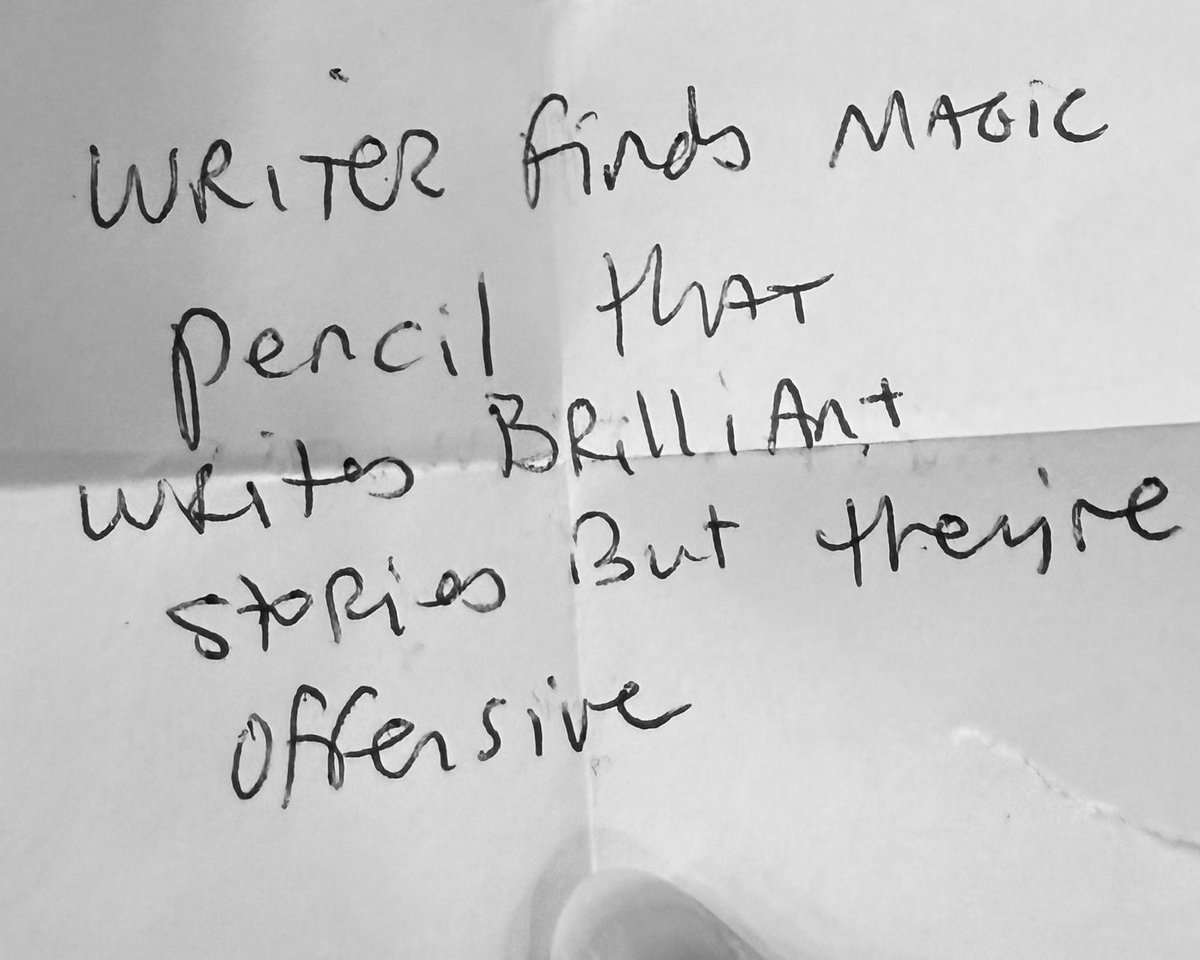 WRITER finds MAGIC
pencil that
writes BRilliAnt
stories But they're
offensive